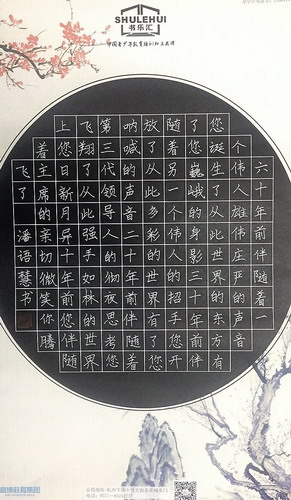 SHULEHUI
书乐汇
六十年前伴随着一
个伟人雄伟庄严的声音
您诞生了从此世界的东方有
了您巍峨的身影三十年前伴
随着另一个伟人的招手您开
放了从此多彩的世界有了您
呐喊的声音二十年前伴随着
第三代领导人一彻夜思考您
飞翔了从此强手如林的世界
上您日新月异十年前您伴随
着主席的亲切微笑你腾
飞了
潘语慧书